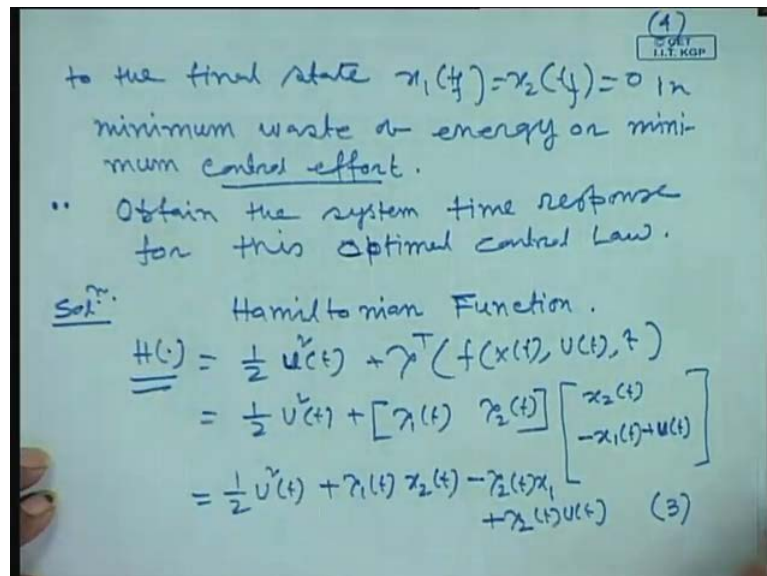 (4)
© CET
I.I.T. KGP
to the final state x₁(t_f)=x₂(t_f)=0 in
minimum waste of energy or mini-
mum control effort.
.. Obtain the system time response
for this optimal control Law.
Solⁿ. Hamiltonian Function.
H(·) = 1/2 u²(t) + λᵀ(f(x(t), u(t), t)
= 1/2 u²(t) + [λ₁(t) λ₂(t)] [x₂(t)
-x₁(t)+u(t)]
= 1/2 u²(t) + λ₁(t) x₂(t) - λ₂(t)x₁
+ λ₂(t)u(t) (3)